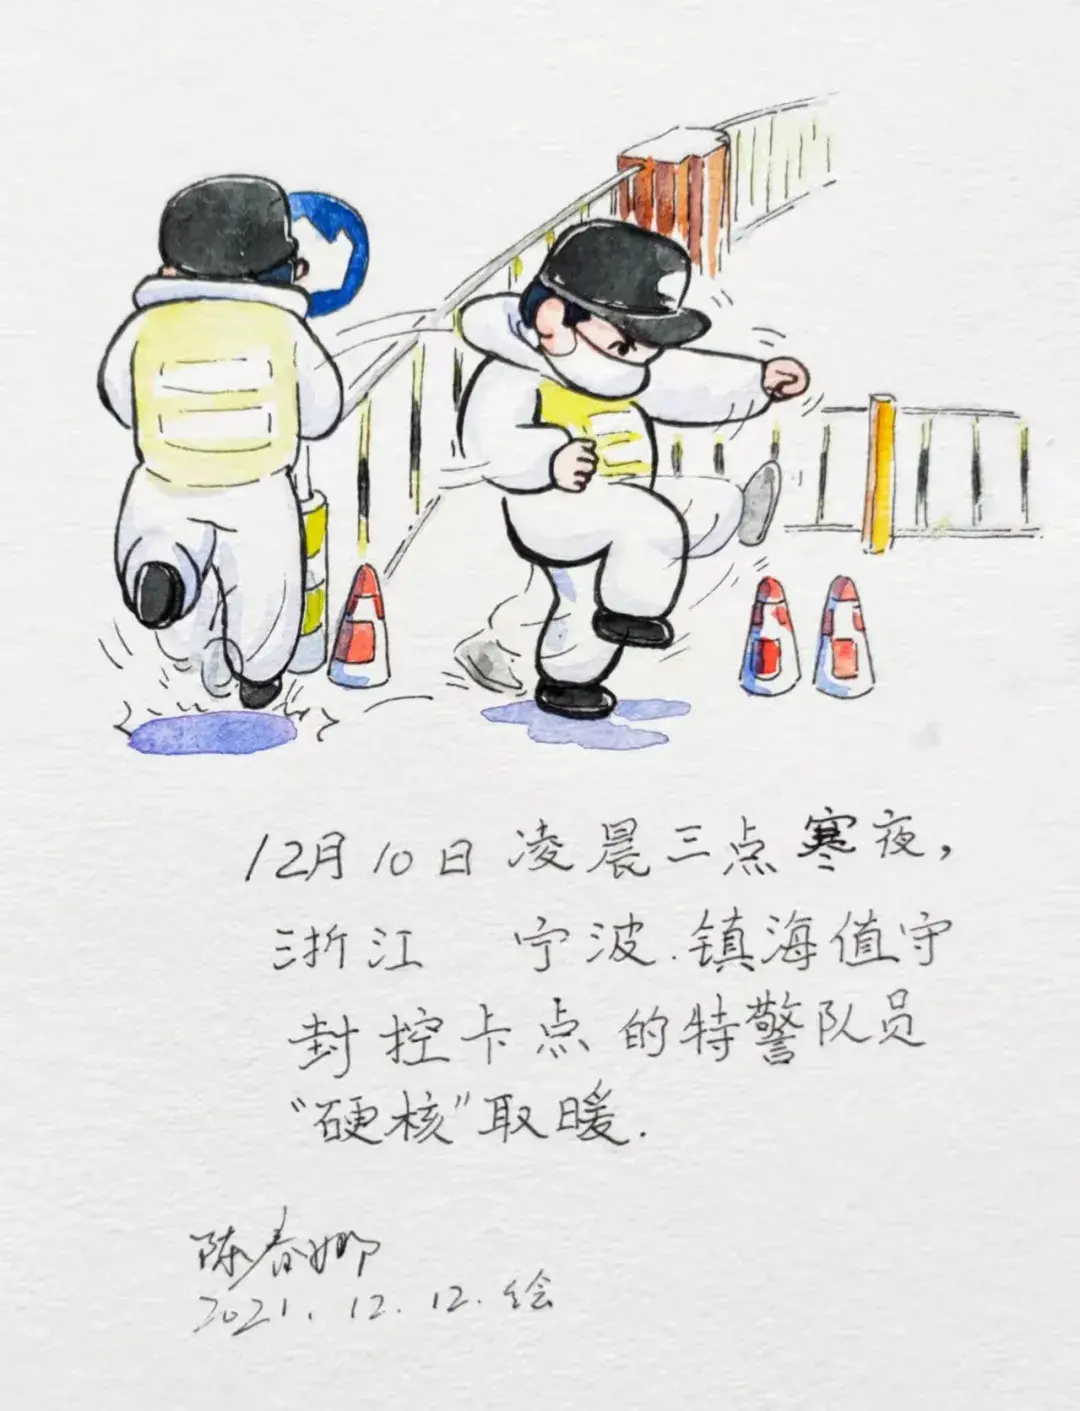 12月10日凌晨三点寒夜，
浙江 宁波.镇海值守
封控卡点的特警队员
“硬核”取暖.
陈春娜
2021.12.12.绘